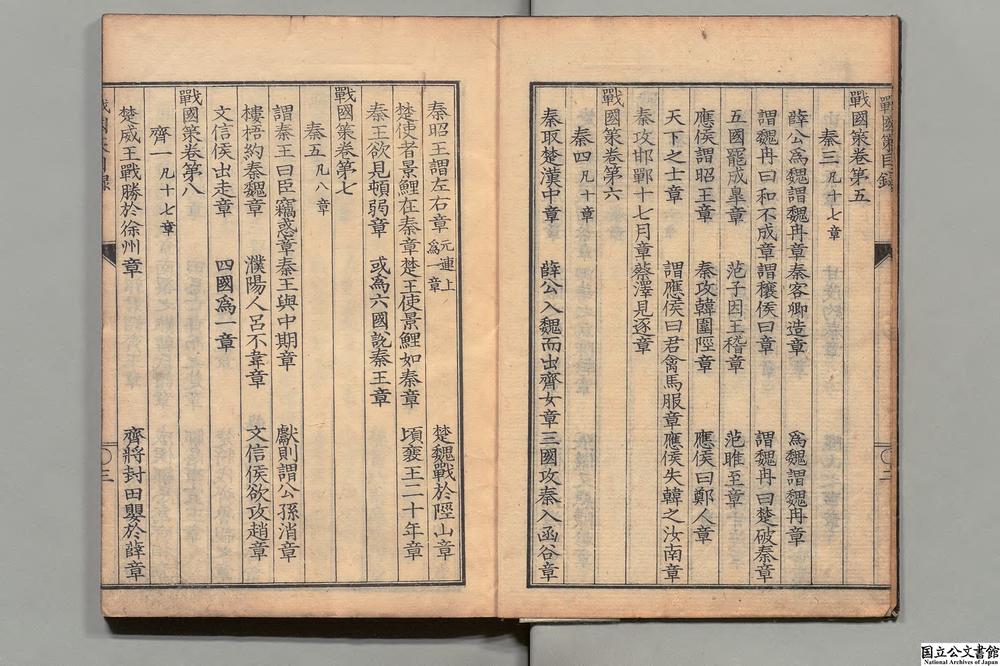 戰國策目録
戰國策卷第五
秦三 凡十七章
薛公爲魏謂魏冉章 秦客卿造章 爲魏謂魏冉章
謂魏冉曰和不成章 謂穰侯曰章 謂魏冉曰楚破秦章
五國罷成皐章 范子因王稽章 范雎至章
應侯謂昭王章 秦攻韓圍陘章 應侯曰鄭人章
天下之士章 謂應侯曰君禽馬服章 應侯失韓之汝南章
秦攻邯鄲十七月章 蔡澤見逐章
戰國策卷第六
秦四 凡十章
秦取楚漢中章 薛公入魏而出齊女章 三國攻秦入函谷章
秦昭王謂左右章 元連上爲一章 楚魏戰於陘山章
楚使者景鯉在秦章 楚王使景鯉如秦章 頃襄王二十年章
秦王欲見頓弱章 或爲六國説秦王章
戰國策卷第七
秦五 凡八章
謂秦王曰臣竊惑章 秦王與中期章 獻則謂公孫消章
樓梧約秦魏章 濮陽人呂不韋章 文信侯欲攻趙章
文信侯出走章 四國爲一章
戰國策卷第八
齊一 凡十七章
楚威王戰勝於徐州章 齊將封田嬰於薛章
三
国立公文書館
National Archives of Japan